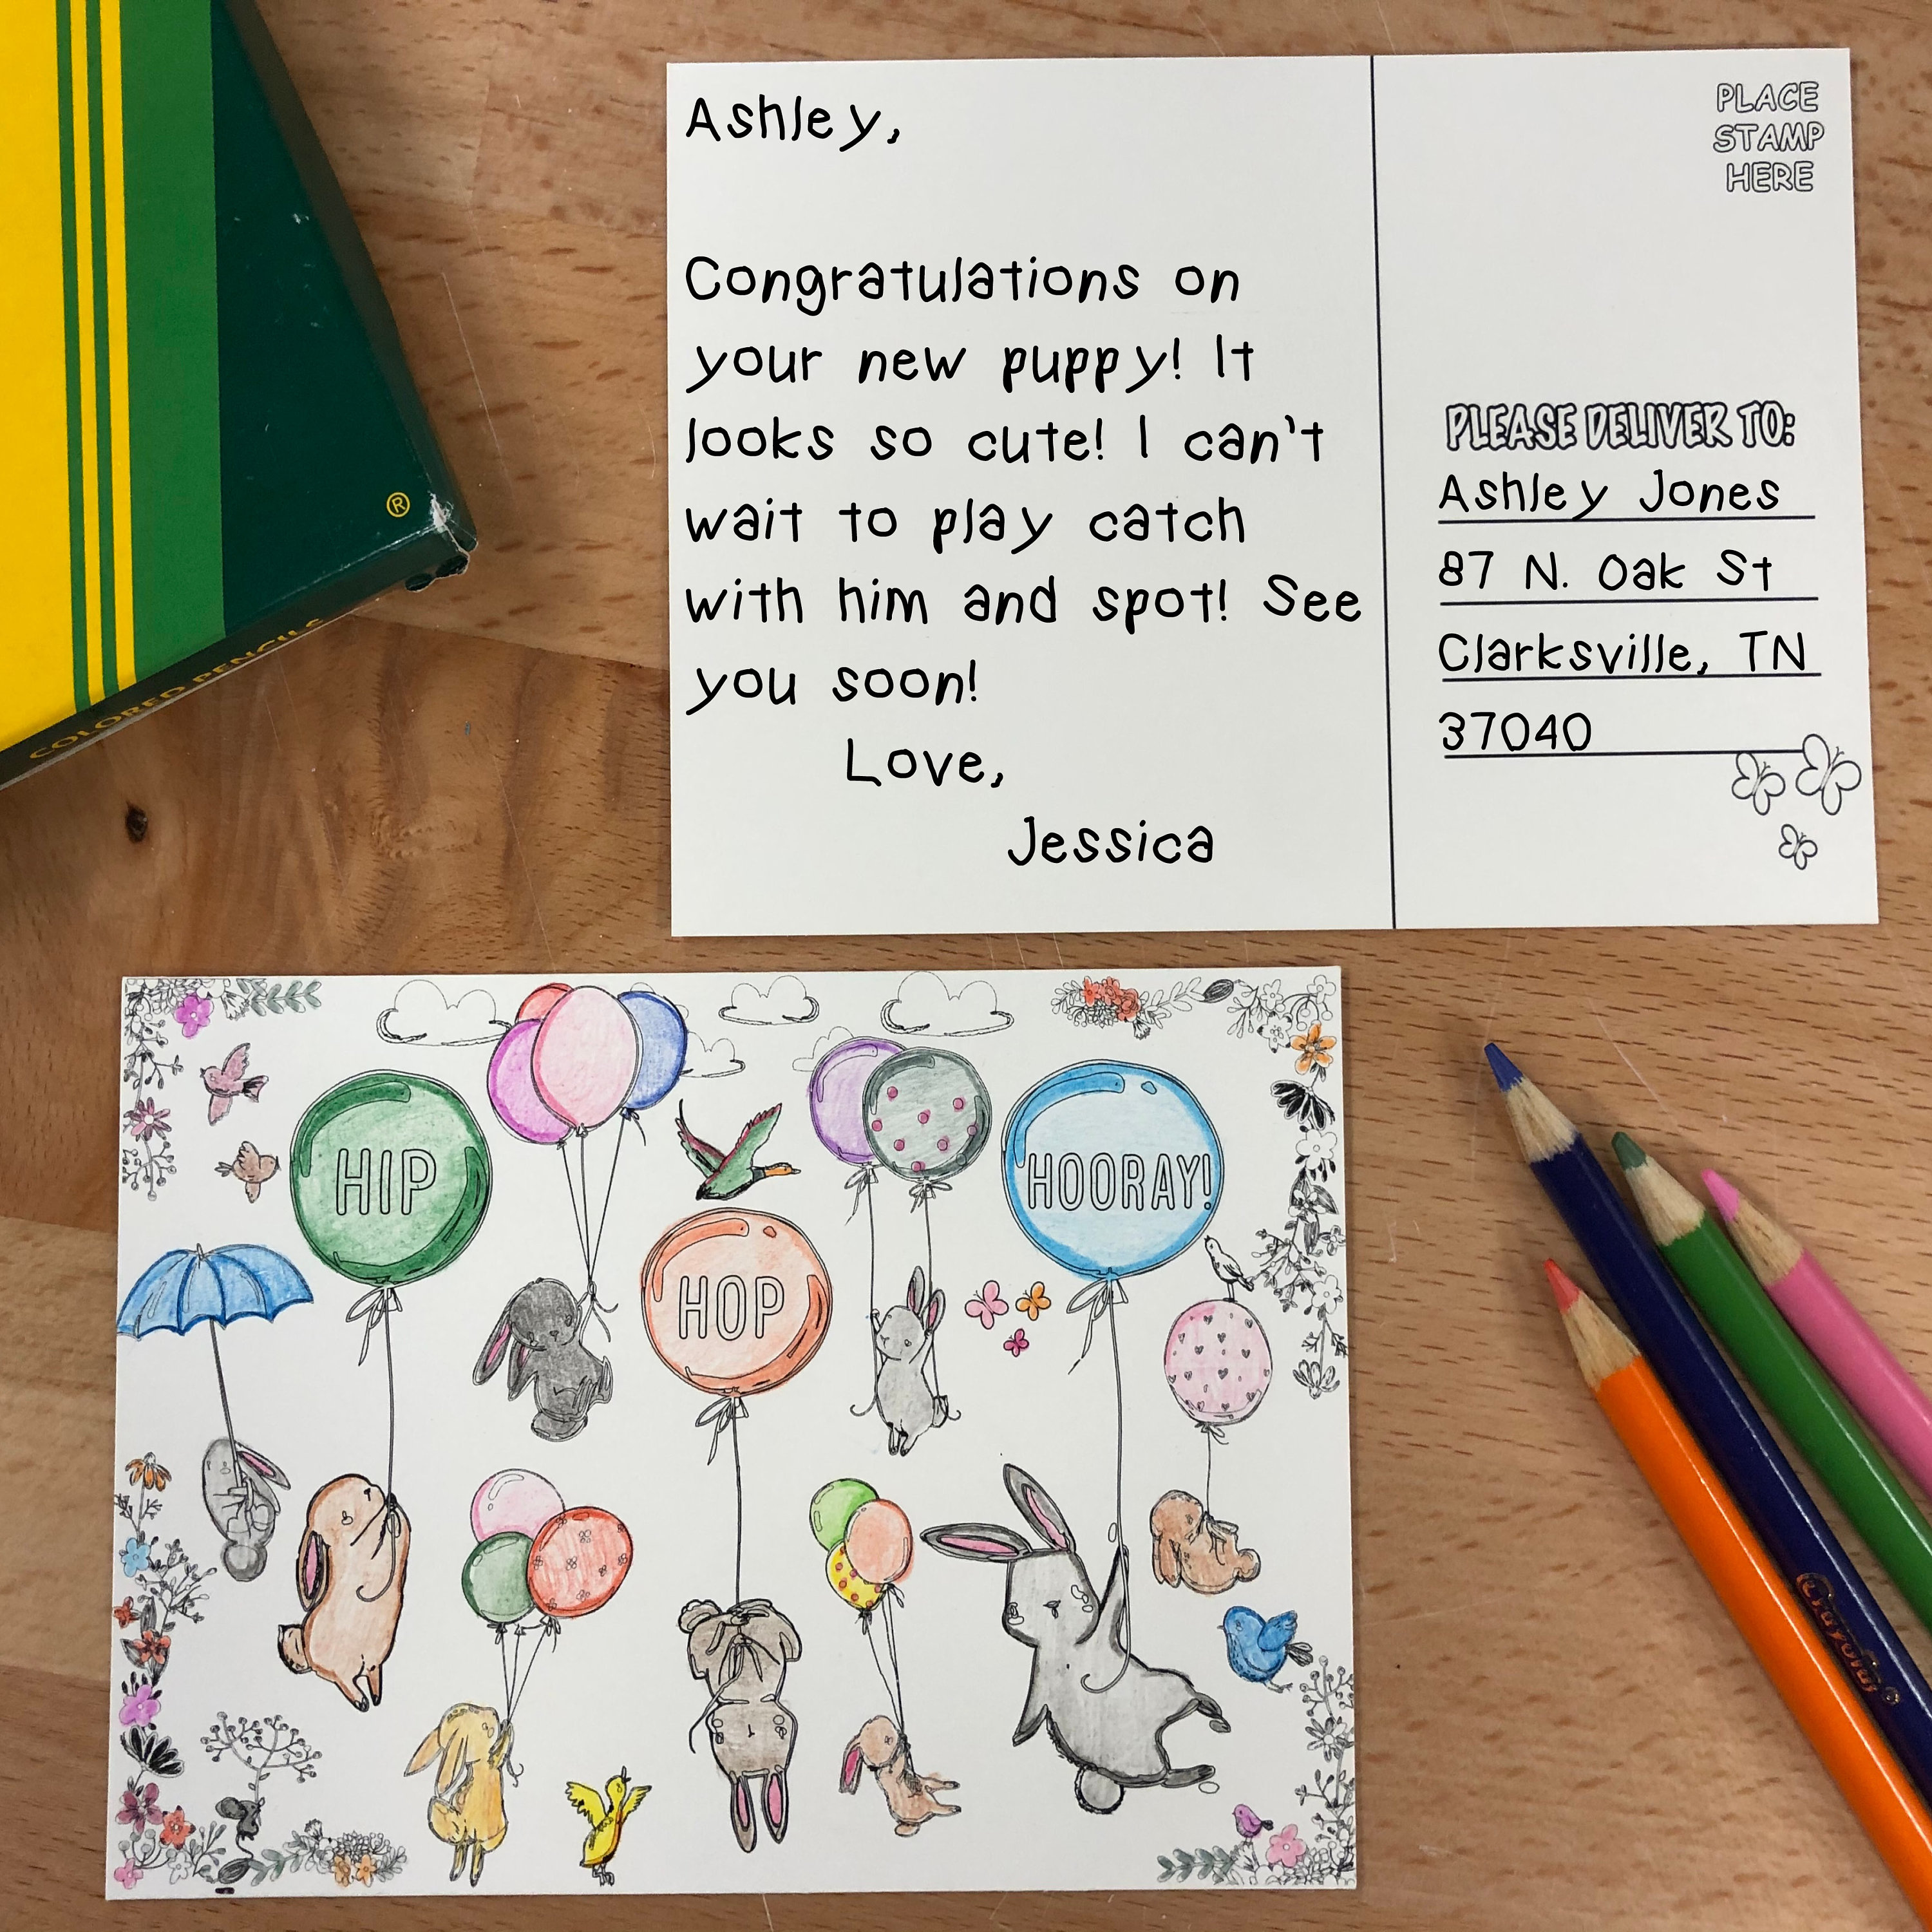 ®
COLORED PENCILS
Ashley,
Congratulations on
your new puppy! It
looks so cute! I can't
wait to play catch
with him and spot! See
you soon!
Love,
Jessica
PLACE
STAMP
HERE
PLEASE DELIVER TO:
Ashley Jones
87 N. Oak St
Clarksville, TN
37040
HIP
HOP
HOORAY!
Crayola